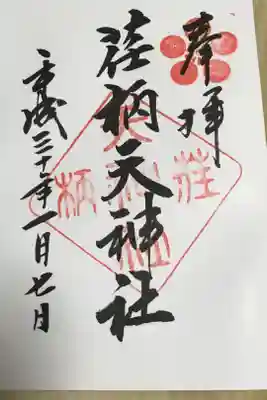 奉拝
荏柄天神社
平成三十年一月七日
荏柄天神社